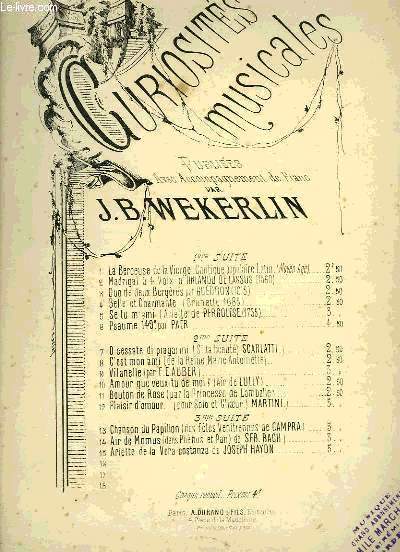 Le-Livre.com
CURIOSITÉS
musicales
PUBLIÉES
Avec Accompagnement de Piano
PAR
J.B. WEKERLIN
1ère SUITE
1 La Berceuse de la Vierge, Cantique populaire Latin (Moyen Age) 2f 50
2 Madrigal à 4 Voix d'ORLANDO DE LASSUS 2. 50
3 Duo de deux Bergères par GUEDRON 2. 50
4 Belle et Charmante (Brunette 1685) 2. 50
5 Se tu m'ami (Ariette de PERGOLESE, 1735) 3.
6 Psaume 140e par PAER 4. 50
2ème SUITE
7 O cessate di piagarmi SCARLATTI 2. 50
8 C'est mon ami (de la Reine Marie Antoinette) 2. 50
9 Villanelle (par F. DAUBER) 3.
10 Amour que veux-tu de moi? (Air de LULLY) 2. 50
11 Bouton de Rose (par la Princesse de Lamballe) 2. 50
12 Plaisir d'amour. (pour Solo et Chœur) MARTINI 5.
3ème SUITE
13 Chanson du Papillon (des Fêtes Vénitiennes de CAMPRA) 3.
14 Air de Momus (dans Phébus et Pan) de SEB. BACH 3.
15 Ariette de la Vera costanza de JOSEPH HAYDN 5.
16
17
18
Chaque recueil
Paris, A. DURAND & FILS, Editeurs
4, Place de la Madeleine
MUSIQUE